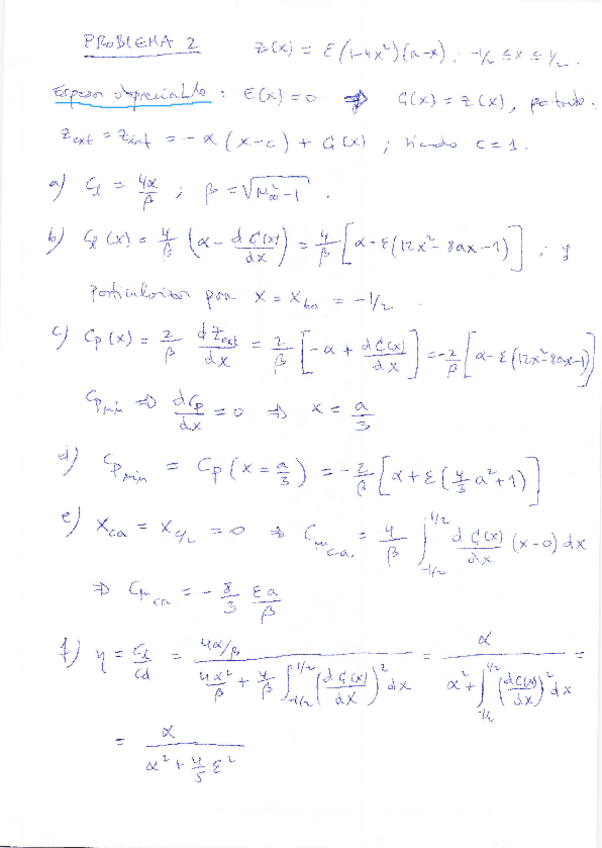 PROBLEMA 2 Z(x) = ε(1-4x²)(a-x) ; -1/2 ≤ x ≤ 1/2.
Espesor despreciable : E(x) = 0 ⇒ C(x) = Z(x), por tanto.
Z_ext = Z_int = -α(x-c) + C(x) ; siendo c = 1.
a) C_l = 4α/β ; β = √(M∞²-1) .
b) C_l(x) = 4/β (α - dC(x)/dx) = 4/β [α - ε(12x² - 8ax - 1)] ; y
particularizar para x = x_ba = -1/2 .
c) C_p(x) = 2/β dZ_ext/dx = 2/β [-α + dC(x)/dx] = -2/β [α - ε(12x²-8ax-1)]
C_p min ⇒ dC_p/dx = 0 ⇒ x = a/3
d) C_p min = C_p(x = a/3) = -2/β [α + ε(4/3 a² + 1)]
e) X_ca = X_c/2 = 0 ⇒ C_m c.a. = 4/β ∫_{-1/2}^{1/2} dC(x)/dx (x-0) dx
⇒ C_m ca = - 8/3 εa/β
f) η = C_l/C_d = (4α/β) / (4α²/β + 4/β ∫_{-1/2}^{1/2} (dC(x)/dx)² dx) = α / (α² + ∫_{-1/2}^{1/2} (dC(x)/dx)² dx) =
= α / (α² + 4/5 ε²)